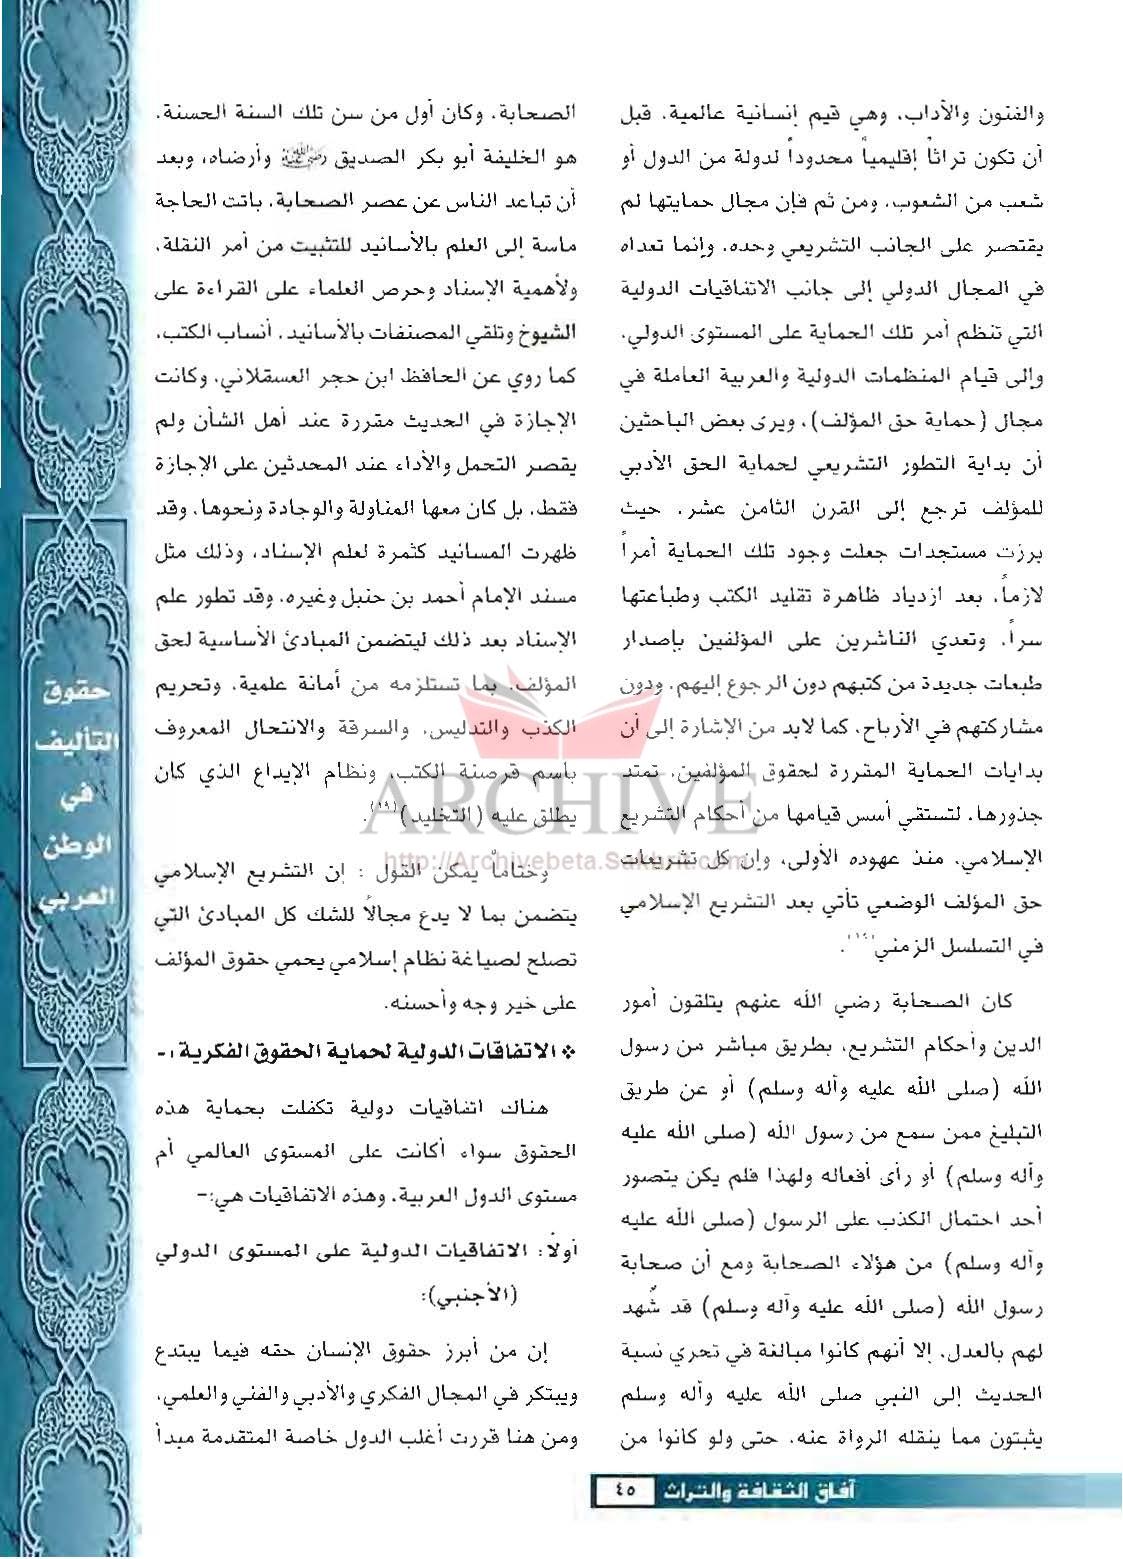 والفنون والآداب، وهي قيم إنسانية عالمية، قبل
أن تكون تراثاً إقليمياً محدوداً لدولة من الدول أو
شعب من الشعوب، ومن ثم فإن مجال حمايتها لم
يقتصر على الجانب التشريعي وحده، وإنما تعداه
في المجال الدولي إلى جانب الاتفاقيات الدولية
التي تنظم أمر تلك الحماية على المستوى الدولي،
وإلى قيام المنظمات الدولية والعربية العاملة في
مجال (حماية حق المؤلف)، ويرى بعض الباحثين
أن بداية التطور التشريعي لحماية الحق الأدبي
للمؤلف ترجع إلى القرن الثامن عشر، حيث
برزت مستجدات جعلت وجود تلك الحماية أمراً
لازماً، بعد ازدياد ظاهرة تقليد الكتب وطباعتها
سراً، وتعدي الناشرين على المؤلفين بإصدار
طبعات جديدة من كتبهم دون الرجوع إليهم، ودون
مشاركتهم في الأرباح، كما لابد من الإشارة إلى أن
بدايات الحماية المقررة لحقوق المؤلفين، تمتد
جذورها، لتستقي أسس قيامها من أحكام التشريع
الإسلامي، منذ عهوده الأولى، وإن كل تشريعات
حق المؤلف الوضعي تأتي بعد التشريع الإسلامي
في التسلسل الزمني.
كان الصحابة رضي الله عنهم يتلقون أمور
الدين وأحكام التشريع، بطريق مباشر من رسول
الله (صلى الله عليه وآله وسلم) أو عن طريق
التبليغ ممن سمع من رسول الله (صلى الله عليه
وآله وسلم) أو رأى أفعاله ولهذا فلم يكن يتصور
أحد احتمال الكذب على الرسول (صلى الله عليه
وآله وسلم) من هؤلاء الصحابة ومع أن صحابة
رسول الله (صلى الله عليه وآله وسلم) قد شُهد
لهم بالعدل، إلا أنهم كانوا مبالغة في تحري نسبة
الحديث إلى النبي صلى الله عليه وآله وسلم
يثبتون مما ينقله الرواة عنه، حتى ولو كانوا من
الصحابة، وكان أول من سن تلك السنة الحسنة،
هو الخليفة أبو بكر الصديق رضي الله عنه وأرضاه، وبعد
أن تباعد الناس عن عصر الصحابة، باتت الحاجة
ماسة إلى العلم بالأسانيد للتثبيت من أمر النقلة،
ولأهمية الإسناد وحرص العلماء على القراءة على
الشيوخ وتلقي المصنفات بالأسانيد، أنساب الكتب،
كما روي عن الحافظ ابن حجر العسقلاني، وكانت
الإجازة في الحديث مقررة عند أهل الشأن ولم
يقصر التحمل والأداء عند المحدثين على الإجازة
فقط، بل كان معها المناولة والوجادة ونحوها، وقد
ظهرت المسانيد كثمرة لعلم الإسناد، وذلك مثل
مسند الإمام أحمد بن حنبل وغيره، وقد تطور علم
الإسناد بعد ذلك ليتضمن المبادئ الأساسية لحق
المؤلف، بما تستلزمه من أمانة علمية، وتحريم
الكذب والتدليس، والسرقة والانتحال المعروف
بأسم قرصنة الكتب، ونظام الإيداع الذي كان
يطلق عليه (التخليد)(١٩).
وختاماً يمكن القول : إن التشريع الإسلامي
يتضمن بما لا يدع مجالاً للشك كل المبادئ التي
تصلح لصياغة نظام إسلامي يحمي حقوق المؤلف
على خير وجه وأحسنه.
❖ الاتفاقات الدولية لحماية الحقوق الفكرية :-
هناك اتفاقيات دولية تكفلت بحماية هذه
الحقوق سواء أكانت على المستوى العالمي أم
مستوى الدول العربية، وهذه الاتفاقيات هي:-
أولاً: الاتفاقيات الدولية على المستوى الدولي
(الأجنبي):
إن من أبرز حقوق الإنسان حقه فيما يبتدع
ويبتكر في المجال الفكري والأدبي والفني والعلمي،
ومن هنا قررت أغلب الدول خاصة المتقدمة مبدأ
حقوق
التأليف
في
الوطن
العربي
ARCHIVE
http://Archivebeta.Sakhrit.com
آفاق الثقافة والتراث ٤٥